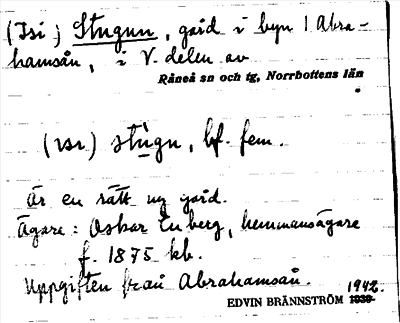 (Isi) Stugun, gård i byn Abra-
hamsån, i V. delen av
Råneå sn och tg, Norrbottens län
stùgn, bf. fem.
Är en rätt ny gård.
Ägare: Oskar Enberg, hemmansägare
f. 1875 kb.
Uppgiften från Abrahamsån.
1942.
EDVIN BRÄNNSTRÖM 1939